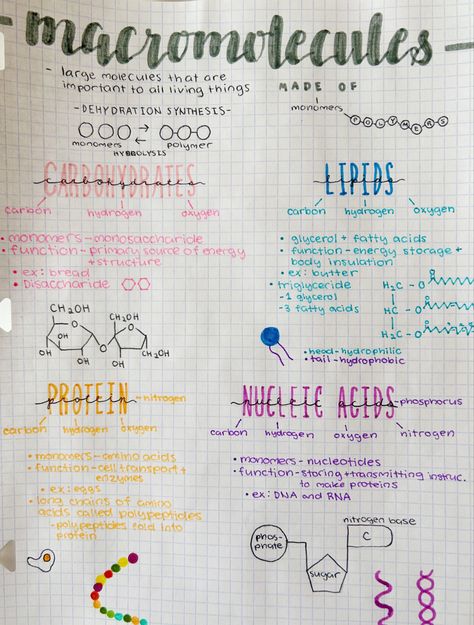 macromolecules
- large molecules that are
important to all living things
MADE OF
monomers
POLYMERS
- DEHYDRATION SYNTHESIS -
monomers
polymer
HYDROLYSIS
CARBOHYDRATES
carbohydrates
carbon hydrogen oxygen
• monomers - monosaccharide
• function - primary source of energy
+ structure
• ex: bread
• Disaccharide
CH₂OH CH₂OH
O O
O
OH OH CH₂OH
OH OH
LIPIDS
lipids
carbon hydrogen oxygen
• glycerol + fatty acids
• function - energy storage +
body insulation
• ex: butter
• triglyceride
- 1 glycerol
- 3 fatty acids
H₂C - O
HC - O
H₂C - O
• head - hydrophilic
• tail - hydrophobic
PROTEIN
protein
- nitrogen
carbon hydrogen oxygen
• monomers - amino acids
• function - cell transport +
enzymes
• ex: eggs
• long chains of amino
acids called polypeptides
- polypeptides fold into
protein
NUCLEIC ACIDS
nucleic acids
- phosphorus
carbon hydrogen oxygen nitrogen
• monomers - nucleotides
• function - storing + transmitting instruc.
to make proteins
• ex: DNA and RNA
nitrogen base
phos-
phate
C
sugar